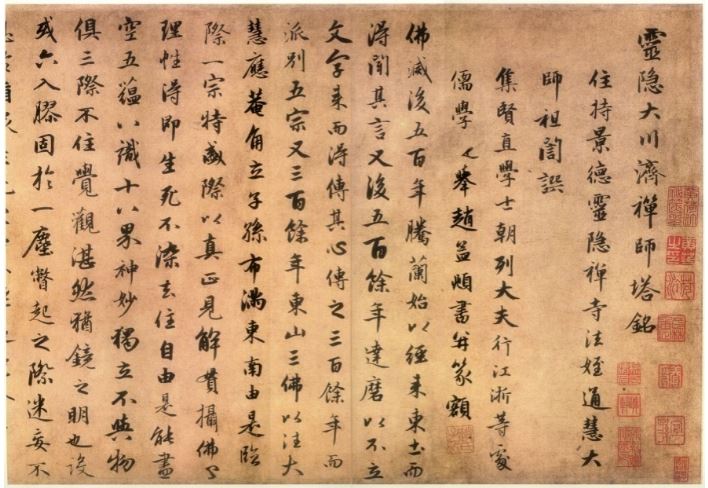 靈隐大川濟禪師塔銘
住持景德靈隐禪寺法姪通慧大
師祖誾譔
集賢直學士朝列大夫行江浙等處
儒學提舉趙孟頫書并篆額
佛滅後五百年騰蘭始以經来東土而
得聞其言又後五百餘年達磨以不立
文字来而得傳其心傳之三百餘年而
派别五宗又三百餘年東山三佛以法大
慧應菴角立子孫布滿東南由是臨
際一宗特盛際以真正見解貫攝佛乀
理性得即生死不染去住自由是能盡
空五蕴八識十八界神妙獨立不與物
俱三際不住覺觀湛然猶鏡之明也設
或六入膠固扵一塵瞥起之際迷妄不